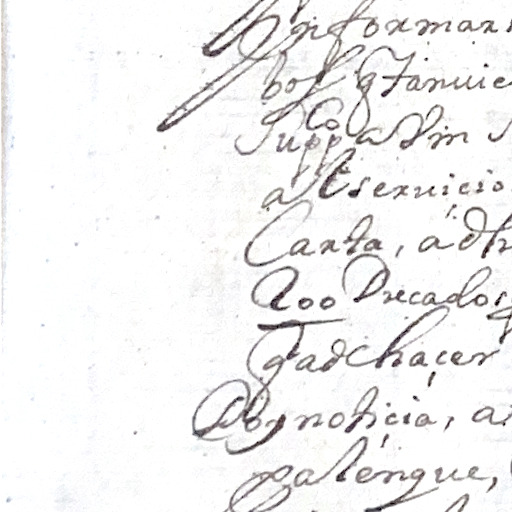 Informar
bos q tan uie
Supp.co a Vm
al servicio
Carta, a dh
200 Ducados
q ad hacer
Doy noticia, a
palenque,